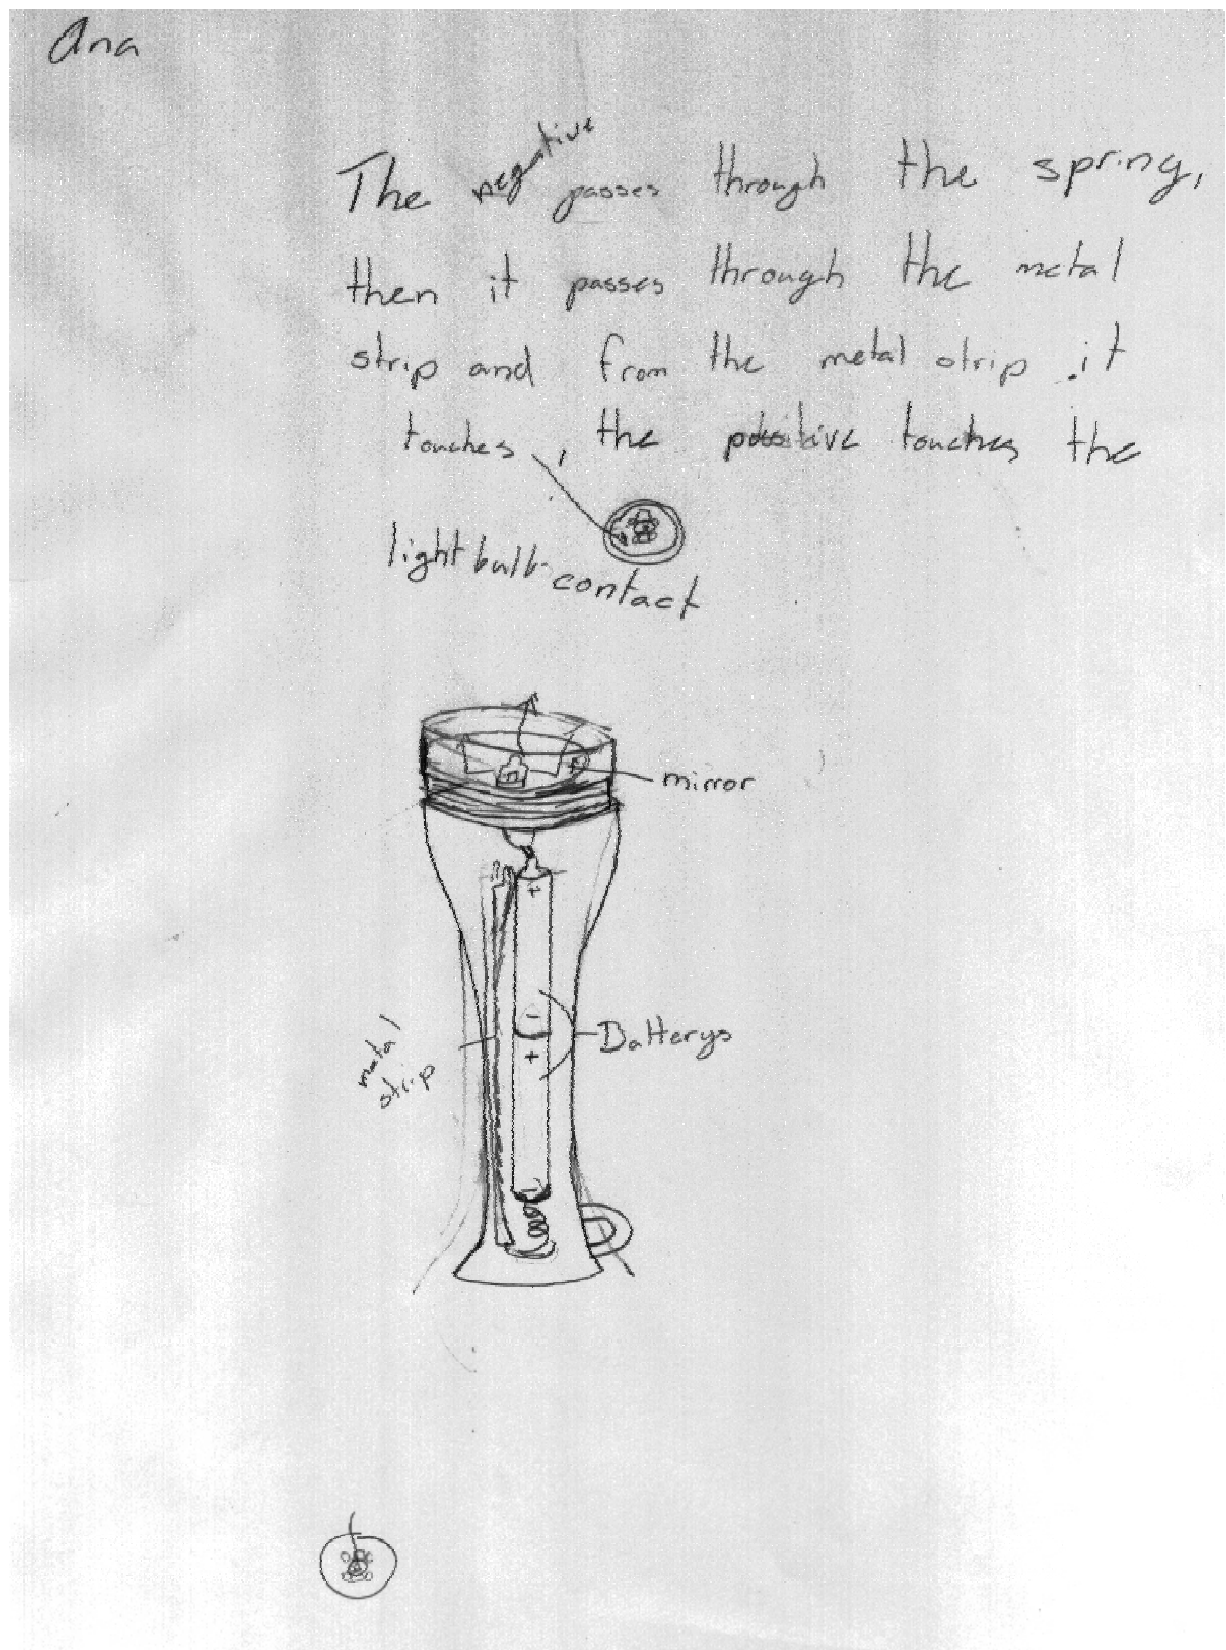 Ana
The negative passes through the spring,
then it passes through the metal
strip and from the metal strip it
touches, the positive touches the
light bulb contact
mirror
+
-
Batterys
+
metal
strip